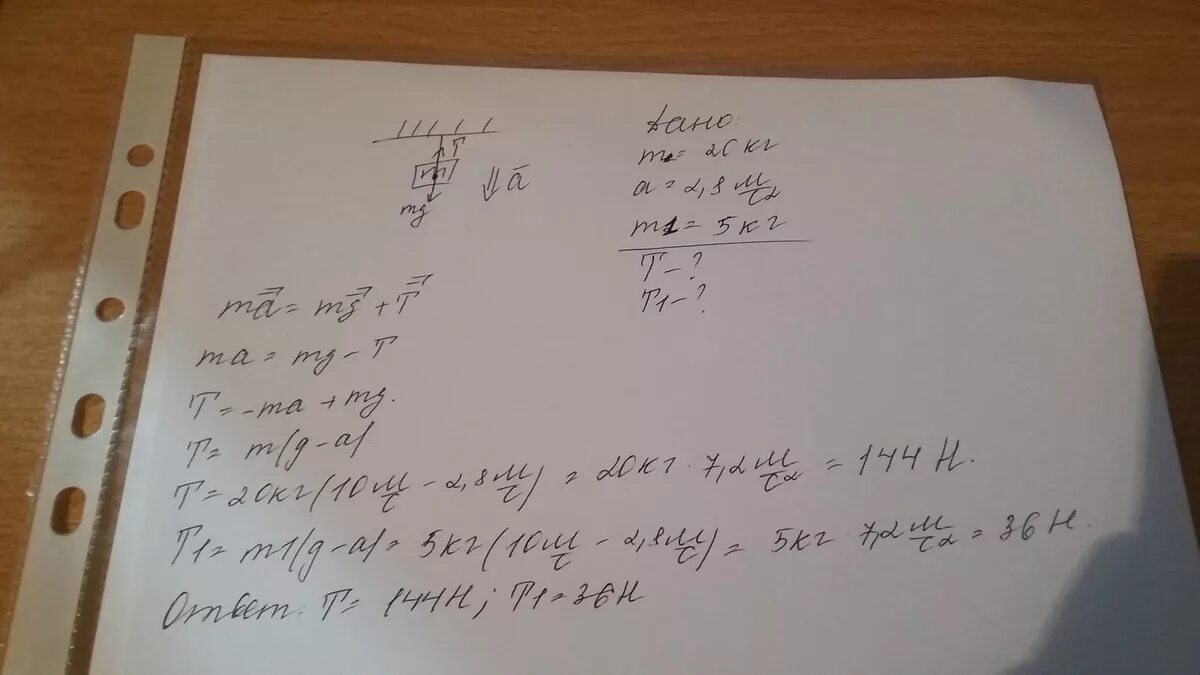 T
m
mg
a
Дано:
m = 20 кг
a = 2,8 м/с2
m1 = 5 кг
T - ?
T1 - ?
ma = mg + T
ma = mg - T
T = -ma + mg.
T = m(g-a)
T = 20кг(10 м/с - 2,8 м/с) = 20кг · 7,2 м/с2 = 144 Н.
T1 = m1(g-a) = 5кг(10 м/с - 2,8 м/с) = 5кг · 7,2 м/с2 = 36 Н.
Ответ: T = 144Н; T1 = 36Н